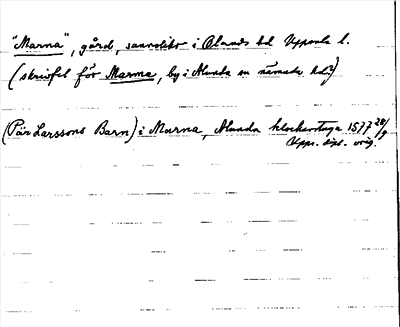 "Marna", gård, sannolikt i Olands hd Uppsala l.
(skrivfel för Marma, by i Alunda sn nämnda hd?)
(Pär Larssons Barn) i Marna, Alunda klockartaga 1577 28/9
Upps. dipl. orig.